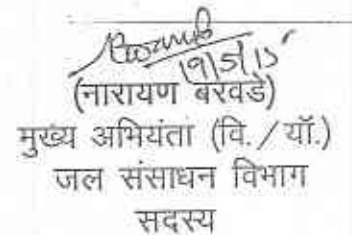 19/5/15
(नारायण बरवडे)
मुख्य अभियंता (वि./यॉ.)
जल संसाधन विभाग
सदस्य